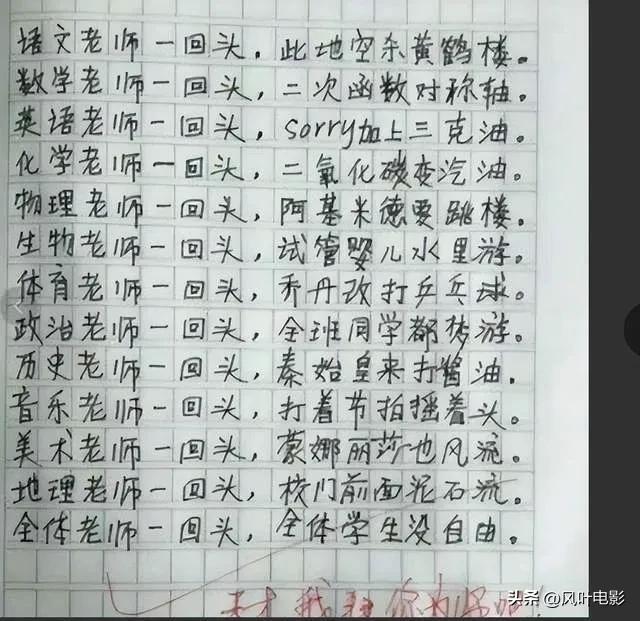 语文老师一回头，此地空余黄鹤楼。
数学老师一回头，二次函数对称轴。
英语老师一回头，sorry加上三克油。
化学老师一回头，二氧化碳变汽油。
物理老师一回头，阿基米德要跳楼。
生物老师一回头，试管婴儿水里游。
体育老师一回头，乔丹改打乒乓球。
政治老师一回头，全班同学都梦游。
历史老师一回头，秦始皇来打酱油。
音乐老师一回头，打着节拍摇着头。
美术老师一回头，蒙娜丽莎也风流。
地理老师一回头，校门前面泥石流。
全体老师一回头，全体学生没自由。
天才 我 你为
头条 @风叶电影